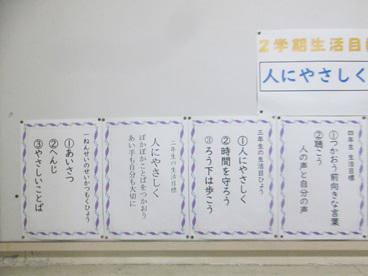 2学期生活目標
人にやさしく
四年生 生活目標
①つかおう前向きな言葉
②聴こう
人の声と自分の声
三年生の生活目ひょう
①人にやさしく
②時間を守ろう
③ろう下は歩こう
二年生の生活目標
人にやさしく
ぽかぽかことばをつかおう
あい手も自分も大切に
一ねんせいのせいかつもくひょう
①あいさつ
②へんじ
③やさしいことば